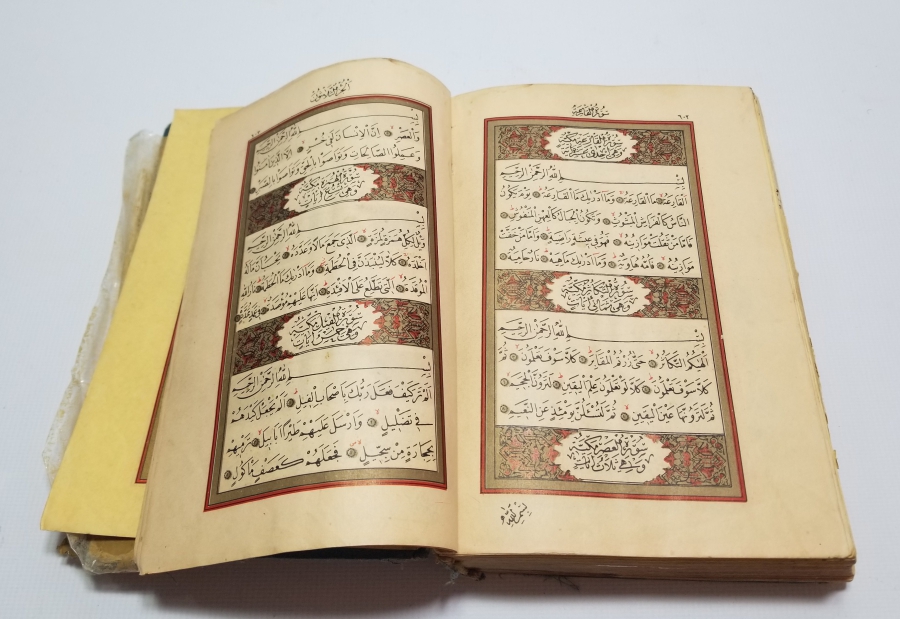 ٦٠٢
سورة القارعة مكية
وهي احدى عشرة آية
بسم الله الرحمن الرحيم
القارعة ما القارعة وما ادريك ما القارعة يوم يكون
الناس كالفراش المبثوث وتكون الجبال كالعهن المنفوش
فاما من ثقلت موازينه فهو في عيشة راضية واما من خفت
موازينه فامه هاوية وما ادريك ماهيه نار حامية
سورة التكاثر مكية
وهي ثماني آيات
بسم الله الرحمن الرحيم
الهيكم التكاثر حتى زرتم المقابر كلا سوف تعلمون ثم
كلا سوف تعلمون كلا لو تعلمون علم اليقين لترون الجحيم
ثم لترونها عين اليقين ثم لتسئلن يومئذ عن النعيم
سورة العصر مكية
وهي ثلاث آيات
بسم الله
الجزء الثلاثون
بسم الله الرحمن الرحيم
والعصر ان الانسان لفي خسر الا الذين امنوا
وعملوا الصالحات وتواصوا بالحق وتواصوا بالصبر
سورة الهمزة مكية
وهي تسع آيات
بسم الله الرحمن الرحيم
ويل لكل همزة لمزة الذي جمع مالا وعدده يحسب ان ماله
اخلده كلا لينبذن في الحطمة وما ادريك ما الحطمة نار الله
الموقدة التي تطلع على الافئدة انها عليهم مؤصدة في عمد ممددة
سورة الفيل مكية
وهي خمس آيات
بسم الله الرحمن الرحيم
الم تر كيف فعل ربك باصحاب الفيل الم يجعل كيدهم
في تضليل وارسل عليهم طيرا ابابيل ترميهم
بحجارة من سجيل فجعلهم كعصف ماكول